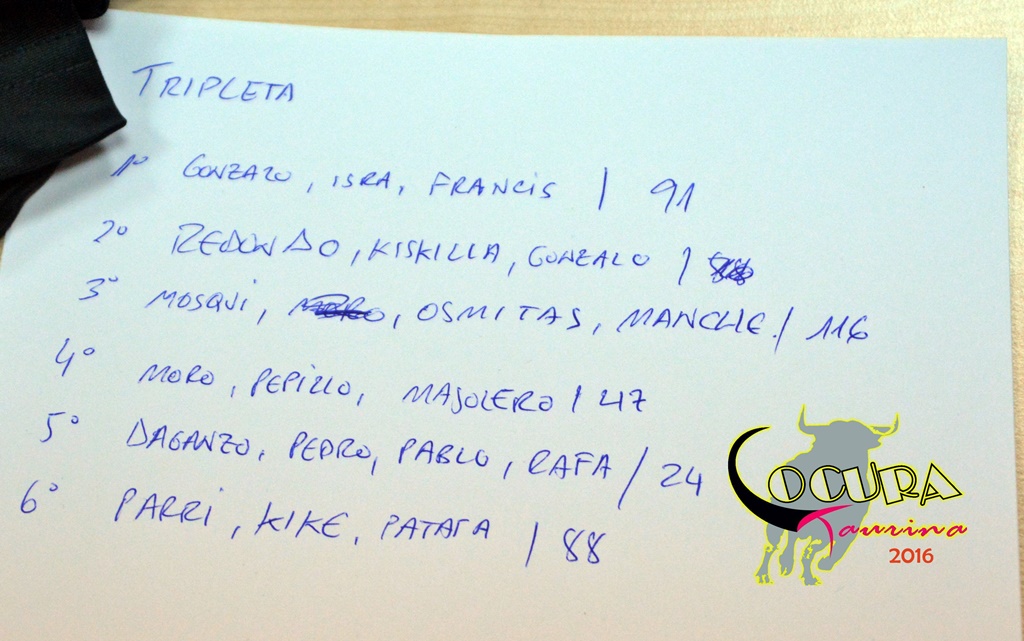 TRIPLETA
1º GONZALO, ISRA, FRANCIS / 91
2º REDONDO, KISKILLA, GONZALO /
3º MOSQUI, , OSMITAS, MANCHE / 116
4º MORO, PEPILLO, MAJOLERO / 47
5º DAGANZO, PEDRO, PABLO, RAFA / 24
6º PARRI, KIKE, PATATA / 88
LOCURA
Taurina
2016